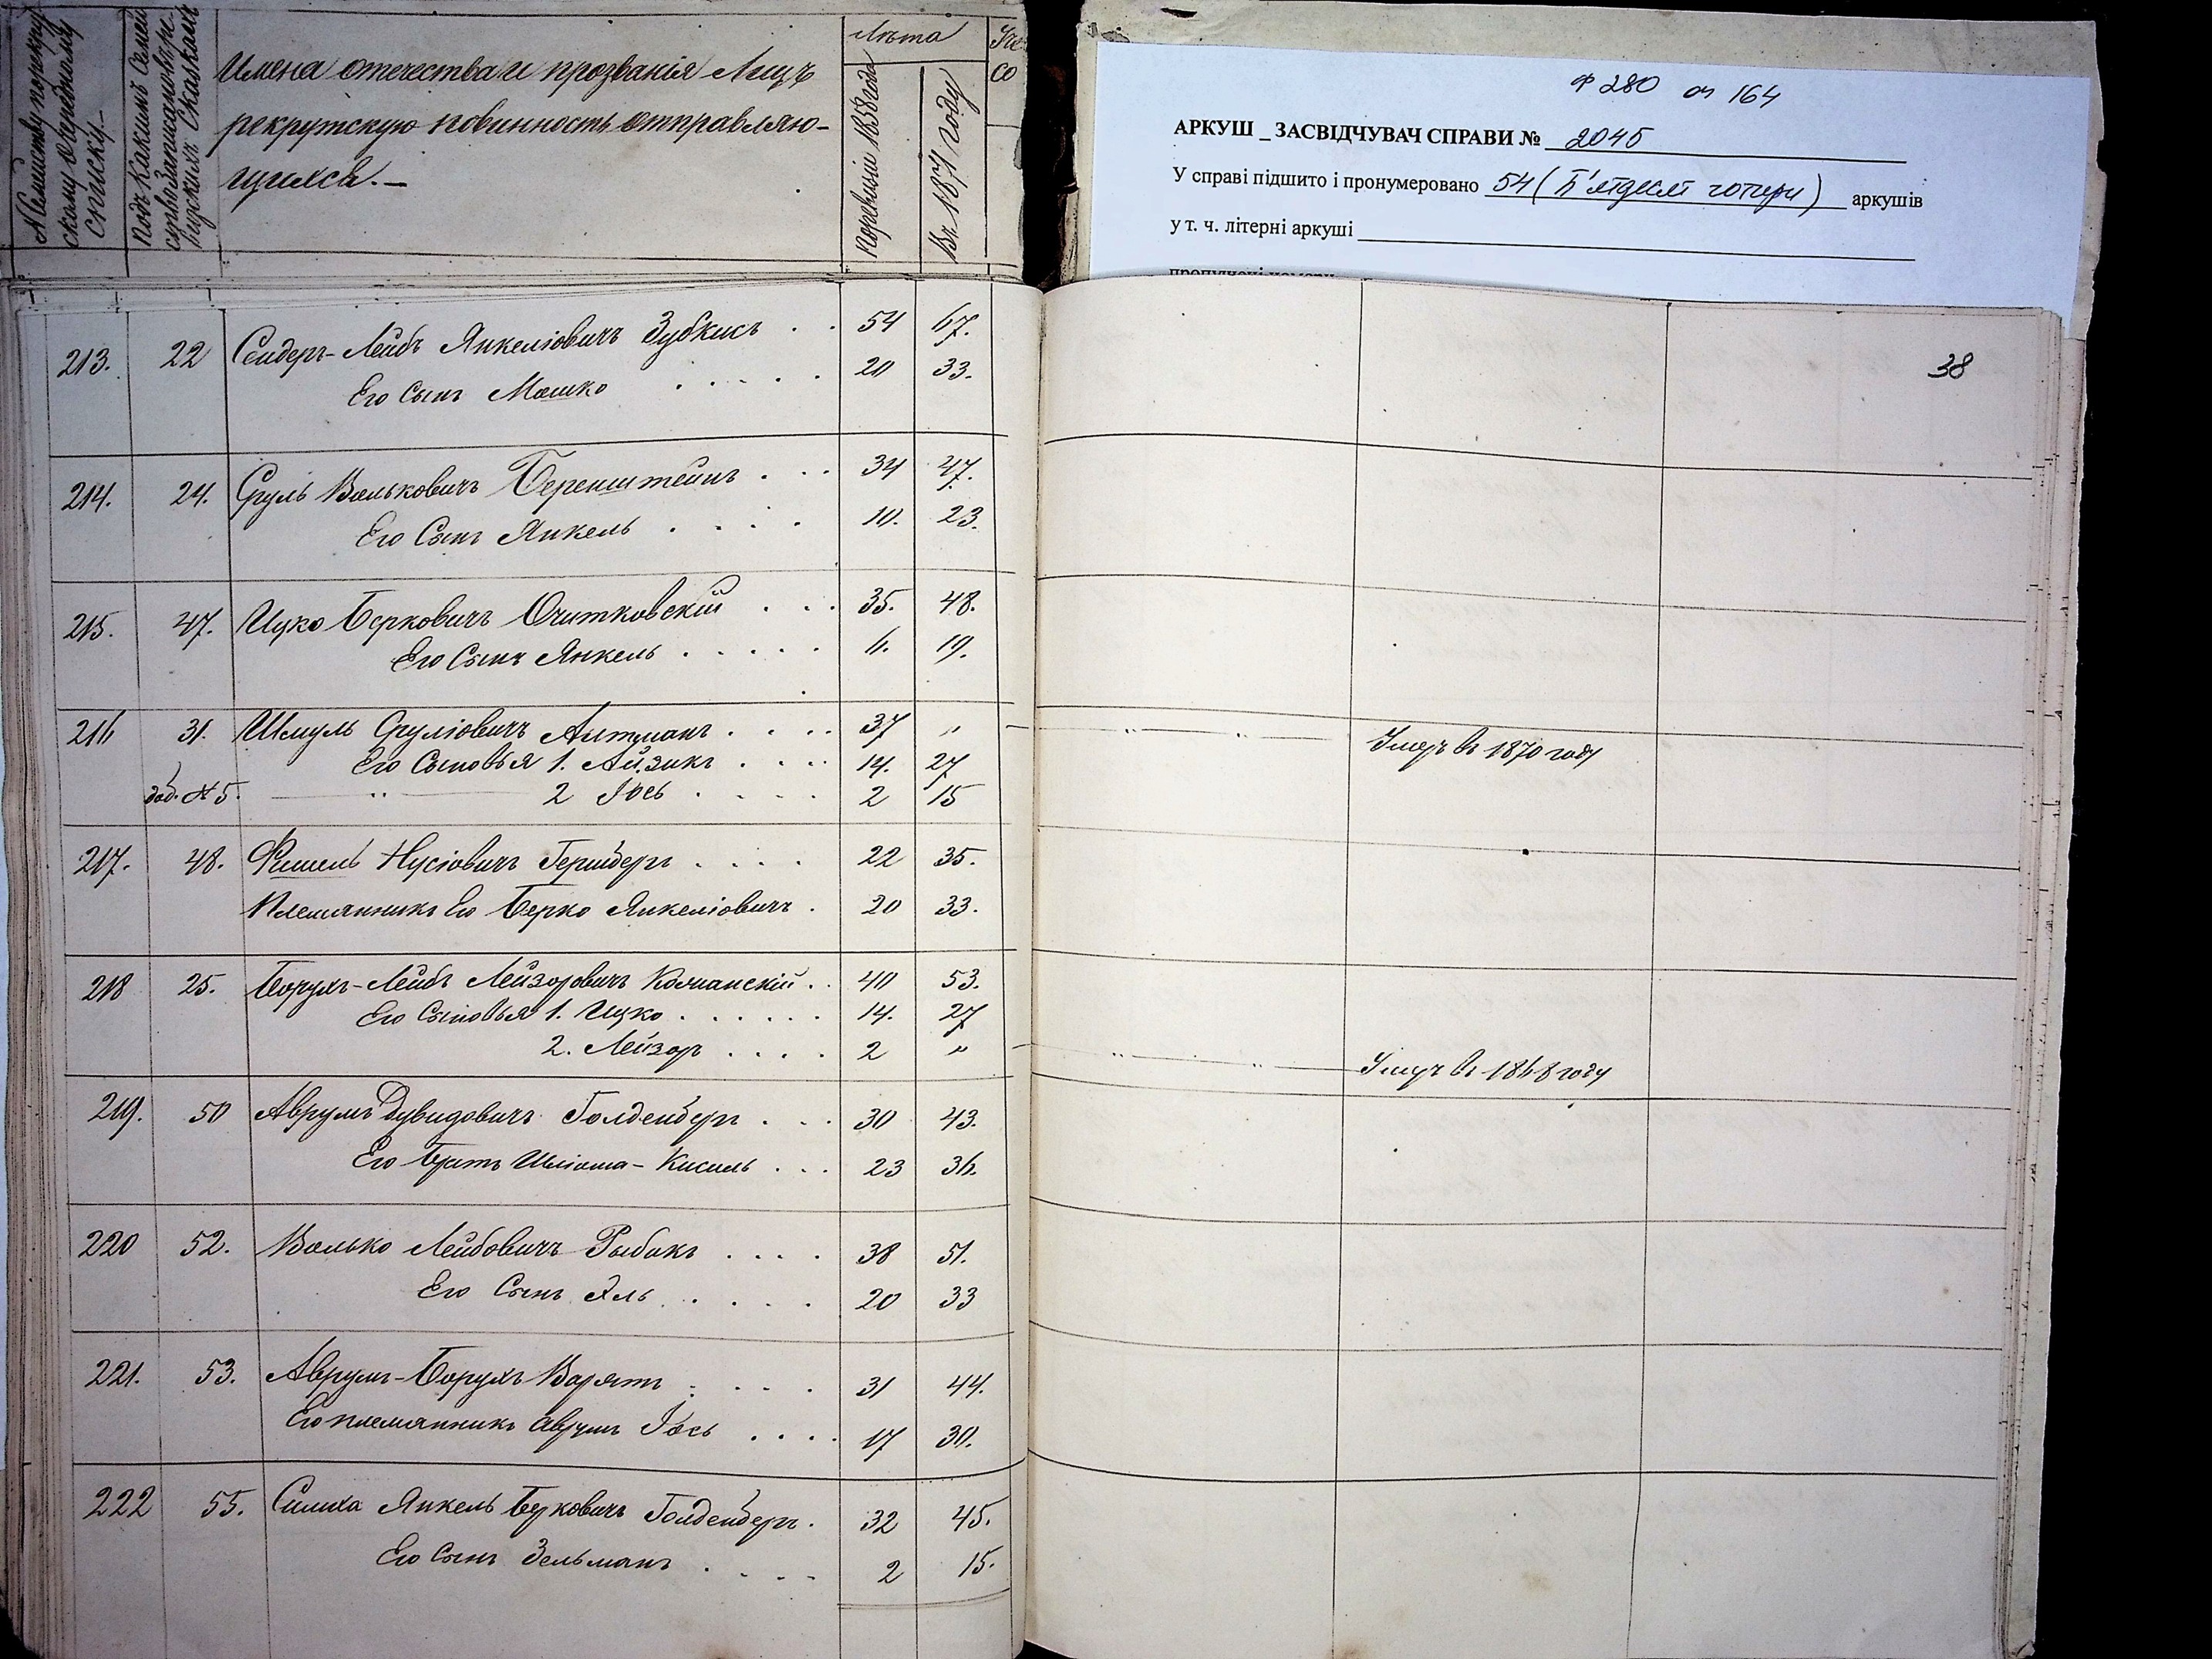 № Семейству по рекрутскому очередному списку.
Подъ какимъ № семейство записано въ рекрутскихъ сказкахъ
Имена отечества и прозванія Лицъ
рекрутскую повинность отправляю-
щихся. —
Лѣта
По ревизіи 1858 года
Въ 1871 году
ф 280 оп 164
АРКУШ _ ЗАСВІДЧУВАЧ СПРАВИ № 2045
У справі підшито і пронумеровано 54 (П'ятдесят чотири) аркушів
у т. ч. літерні аркуші
пропущені номери
38
213. 22 Сендеръ-Лейбъ Янкеліовичъ Зубкисъ . . 54 67.
Его Сынъ Мошко . . . . . 20 33.
214. 24. Сруль Вольковичъ Беренштейнъ . . . 34 47.
Его Сынъ Янкель . . . . 10. 23.
215. 47. Ицко Берковичъ Очитковскій . . . 35. 48.
Его Сынъ Янкель . . . . . 6. 19.
216 31. Шмуль Сруліовичъ Антманъ . . . . 37 " Умеръ въ 1870 году
Его Сыновья 1. Айзикъ . . . . 14. 27
доб. № 5. " 2 Іось . . . . 2 15
217. 48. Фишель Нусіовичъ Гершберг . . . . 22 35.
Племянникъ Его Берко Янкеліовичъ . 20 33.
218 25. Борухъ-Лейбъ Лейзоровичъ Колчанскій . . 40 53.
Его Сыновья 1. Ицко . . . . . . 14. 27
2. Лейзоръ . . . . 2 " Умеръ въ 1868 году
219. 50 Аврумъ Дувидовичъ Голденберг . . . 30 43.
Его Братъ Шліома-Кисиль . . . 23 36.
220 52. Волько Лейбовичъ Рыбакъ . . . . 38 51.
Его Сынъ Эль . . . . 20 33
221. 53. Аврумъ-Борухъ Ворятъ . . . . 31 44.
Его племянникъ Аврумъ Іось . . . . 17 30.
222 55. Симха Янкель Берковичъ Голденберг . 32 45.
Его Сынъ Зельманъ . . . . 2 15.